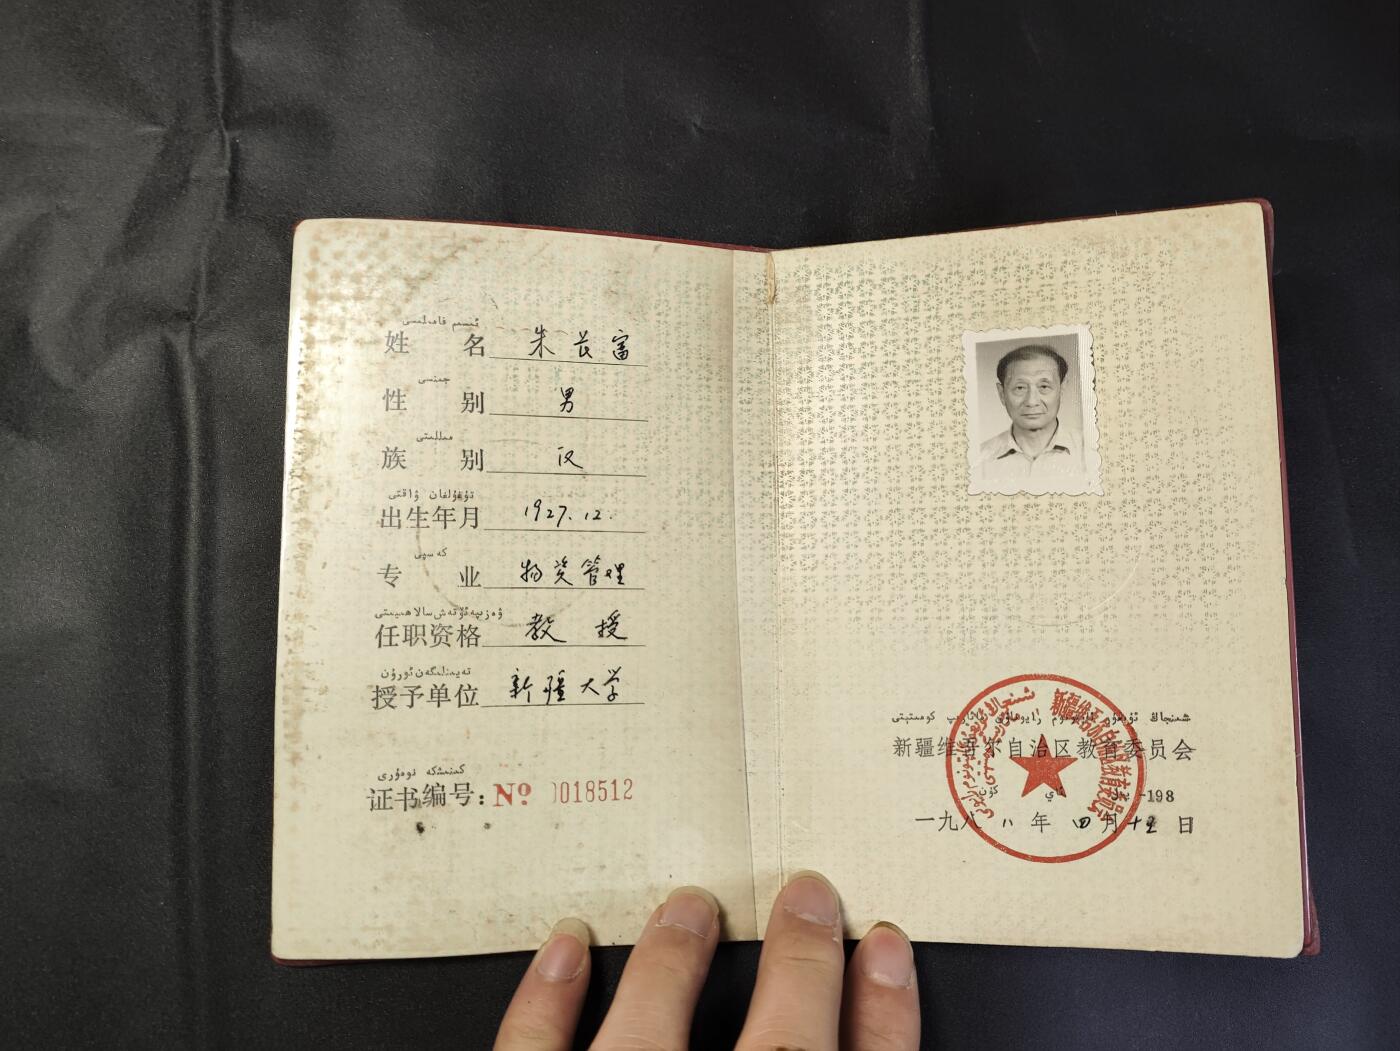 ئىسىم فامىلىسى
姓 名 朱长富
جىنسى
性 别 男
مىللىتى
族 别 汉
تۇغۇلغان ۋاقتى
出生年月 1927.12.
كەسپى
专 业 物资管理
ۋەزىپە ئۆتەش سالاھىيىتى
任职资格 教 授
تەيىنلىگەن ئورۇن
授予单位 新疆大学
كىنىشكە نومۇرى
证书编号: No 0018512
شىنجاڭ ئۇيغۇر ئاپتونوم رايونلۇق مائارىپ كومىتېتى
新疆维吾尔自治区教育委员会
198- يىلى ئاي كۈن
一九八八年四月十五日
新疆维吾尔自治区教育委员会